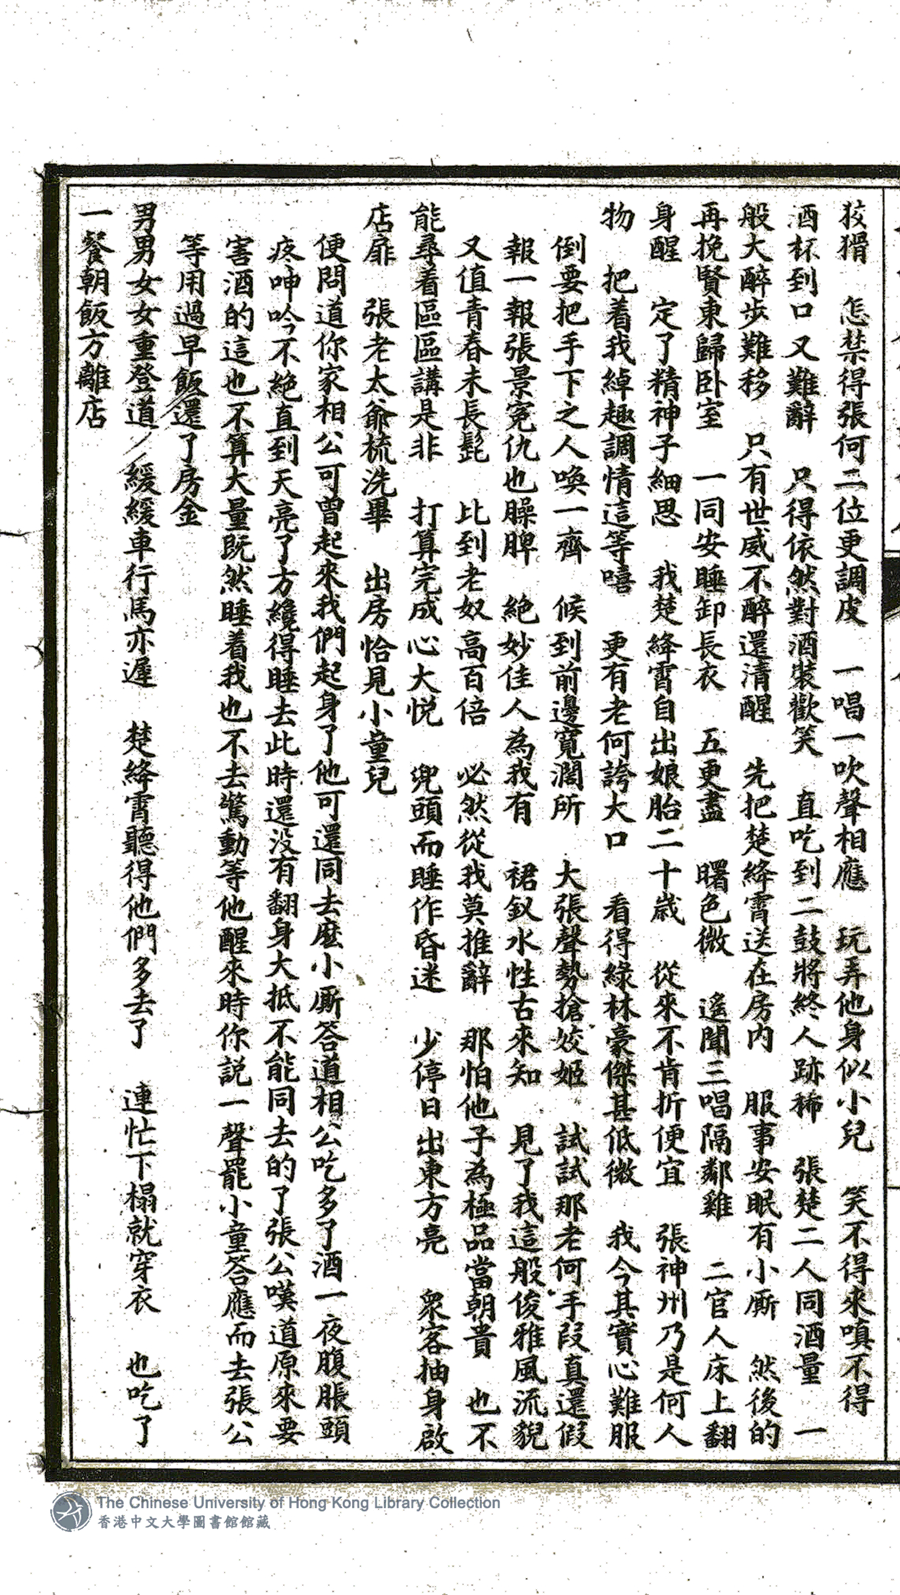 狡猾　怎禁得張何二位更調皮　一唱一吹聲相應　玩弄他身似小兒　笑不得來嗔不得
酒杯到口又難辭　只得依然對酒裝歡笑　直吃到二鼓將終人跡稀　張楚二人同酒量　一
般大醉步難移　只有世威不醉還清醒　先把楚絳霄送在房內　服事安眠有小厮　然後的
再挽賢東歸卧室　一同安睡卸長衣　五更盡　曙色微　遙聞三唱隔鄰雞　二官人床上翻
身醒　定了精神子細思　我楚絳霄自出娘胎二十歲　從來不肯折便宜　張神州乃是何人
物　把着我綽趣調情這等嘻　更有老何誇大口　看得綠林豪傑甚低微　我今其實心難服
倒要把手下之人喚一齊　候到前邊寬濶所　大張聲勢搶姣姬　試試那老何手段真還假
報一報張景寃仇也臊脾　絕妙佳人為我有　裙釵水性古來知　見了我這般俊雅風流貌
又值青春未長髭　比到老奴高百倍　必然從我莫推辭　那怕他子為極品當朝貴　也不
能尋着區區講是非　打算完成心大悅　兜頭而睡作昏迷　少停日出東方亮　衆客抽身啟
店扉　張老太爺梳洗畢　出房恰見小童兒
便問道你家相公可曾起來我們起身了他可還同去麽小厮答道相公吃多了酒一夜腹脹頭
疼呻吟不絕直到天亮了方纔得睡去此時還没有翻身大抵不能同去的了張公嘆道原來要
害酒的這也不算大量既然睡着我也不去驚動等他醒來時你説一聲罷小童答應而去張公
等用過早飯還了房金
男男女女重登道　緩緩車行馬亦遲　楚絳霄聽得他們多去了　連忙下榻就穿衣　也吃了
一餐朝飯方離店
The Chinese University of Hong Kong Library Collection
香港中文大學圖書館館藏